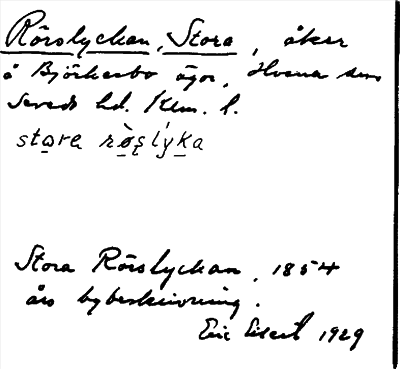 Rörslyckan, Stora, åker
å Björkesbo ägor, Hvena sn
Seveds hd. Klm. l.
stora rö̀slýka
Stora Rörslyckan, 1854
års bybeskrivning.
Eric Elsert 1929